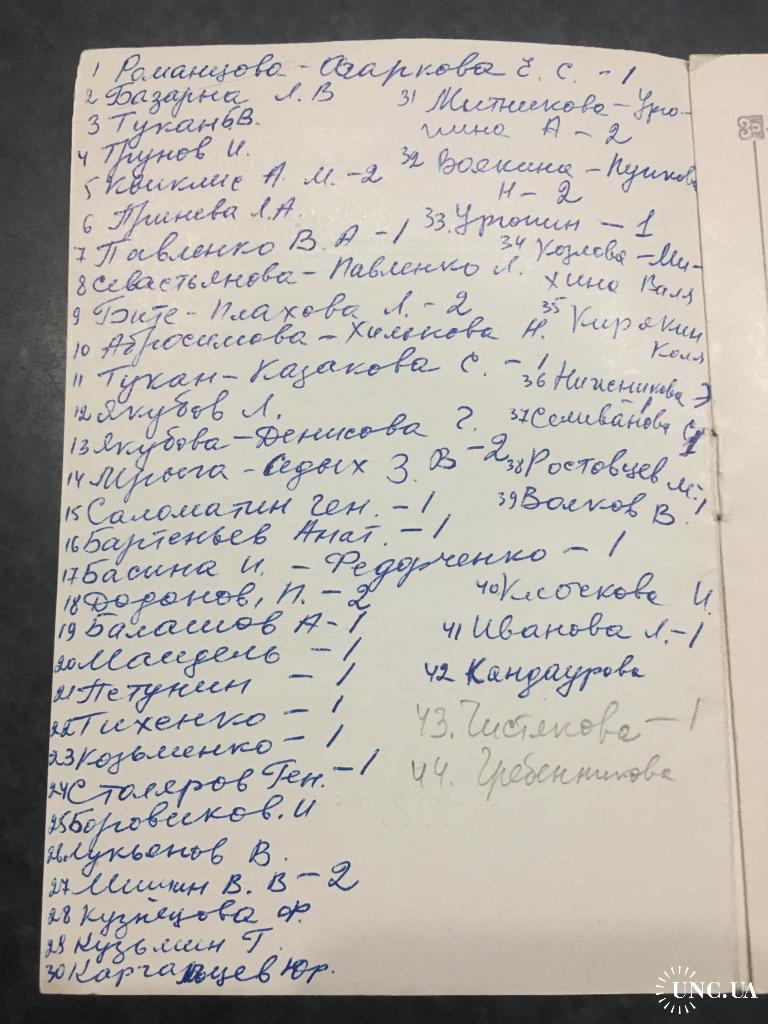 1 Романцова - Озаркова Е. С. - 1
2 Базарна Л. В
3 Тукан Б.В.
4 Трунов И.
5 Квиклис А. М. - 2
6 Гринева Л.А.
7 Павленко В. А - 1
8 Севастьянова - Павленко Л.
9 Бите - Плахова Л. - 2
10 Абросимова - Хилькова Н.
11 Тукан - Казакова С. - 1
12 Якубов Л.
13 Якубова - Денисова Г.
14 - Седых З. В - 2
15 Саломатин Ген. - 1
16 Бартеньев Анат. - 1
17 Басина И. - Федорченко - 1
18 Додонов, П. - 2
19 Балашов А - 1
20 Мандель - 1
21 Петунин - 1
22 Тихенко - 1
23 Козьменко - 1
24 Столяров Ген. - 1
25 Боровиков. И
26 Лукьенов В.
27 Мишин В. В - 2
28 Кузнецова Ф.
29 Кузьмин Т.
30 Каргальцев Юр.
31 Митникова - Урю-
пина А - 2
32 Воякина - Пупкова
Н - 2
33. Урюпин - 1
34 Козлова - Ми-
хина Валя
35 Кирякин
Коля
36 Нижсникова Э
37 Селиванова С 1
38 Ростовцев М. - 1
39 Волков В.
40 Клочкова И.
41 Иванова Л. - 1
42 Кандаурова
43. Чистякова - 1
44. Гребенникова
UNC.UA